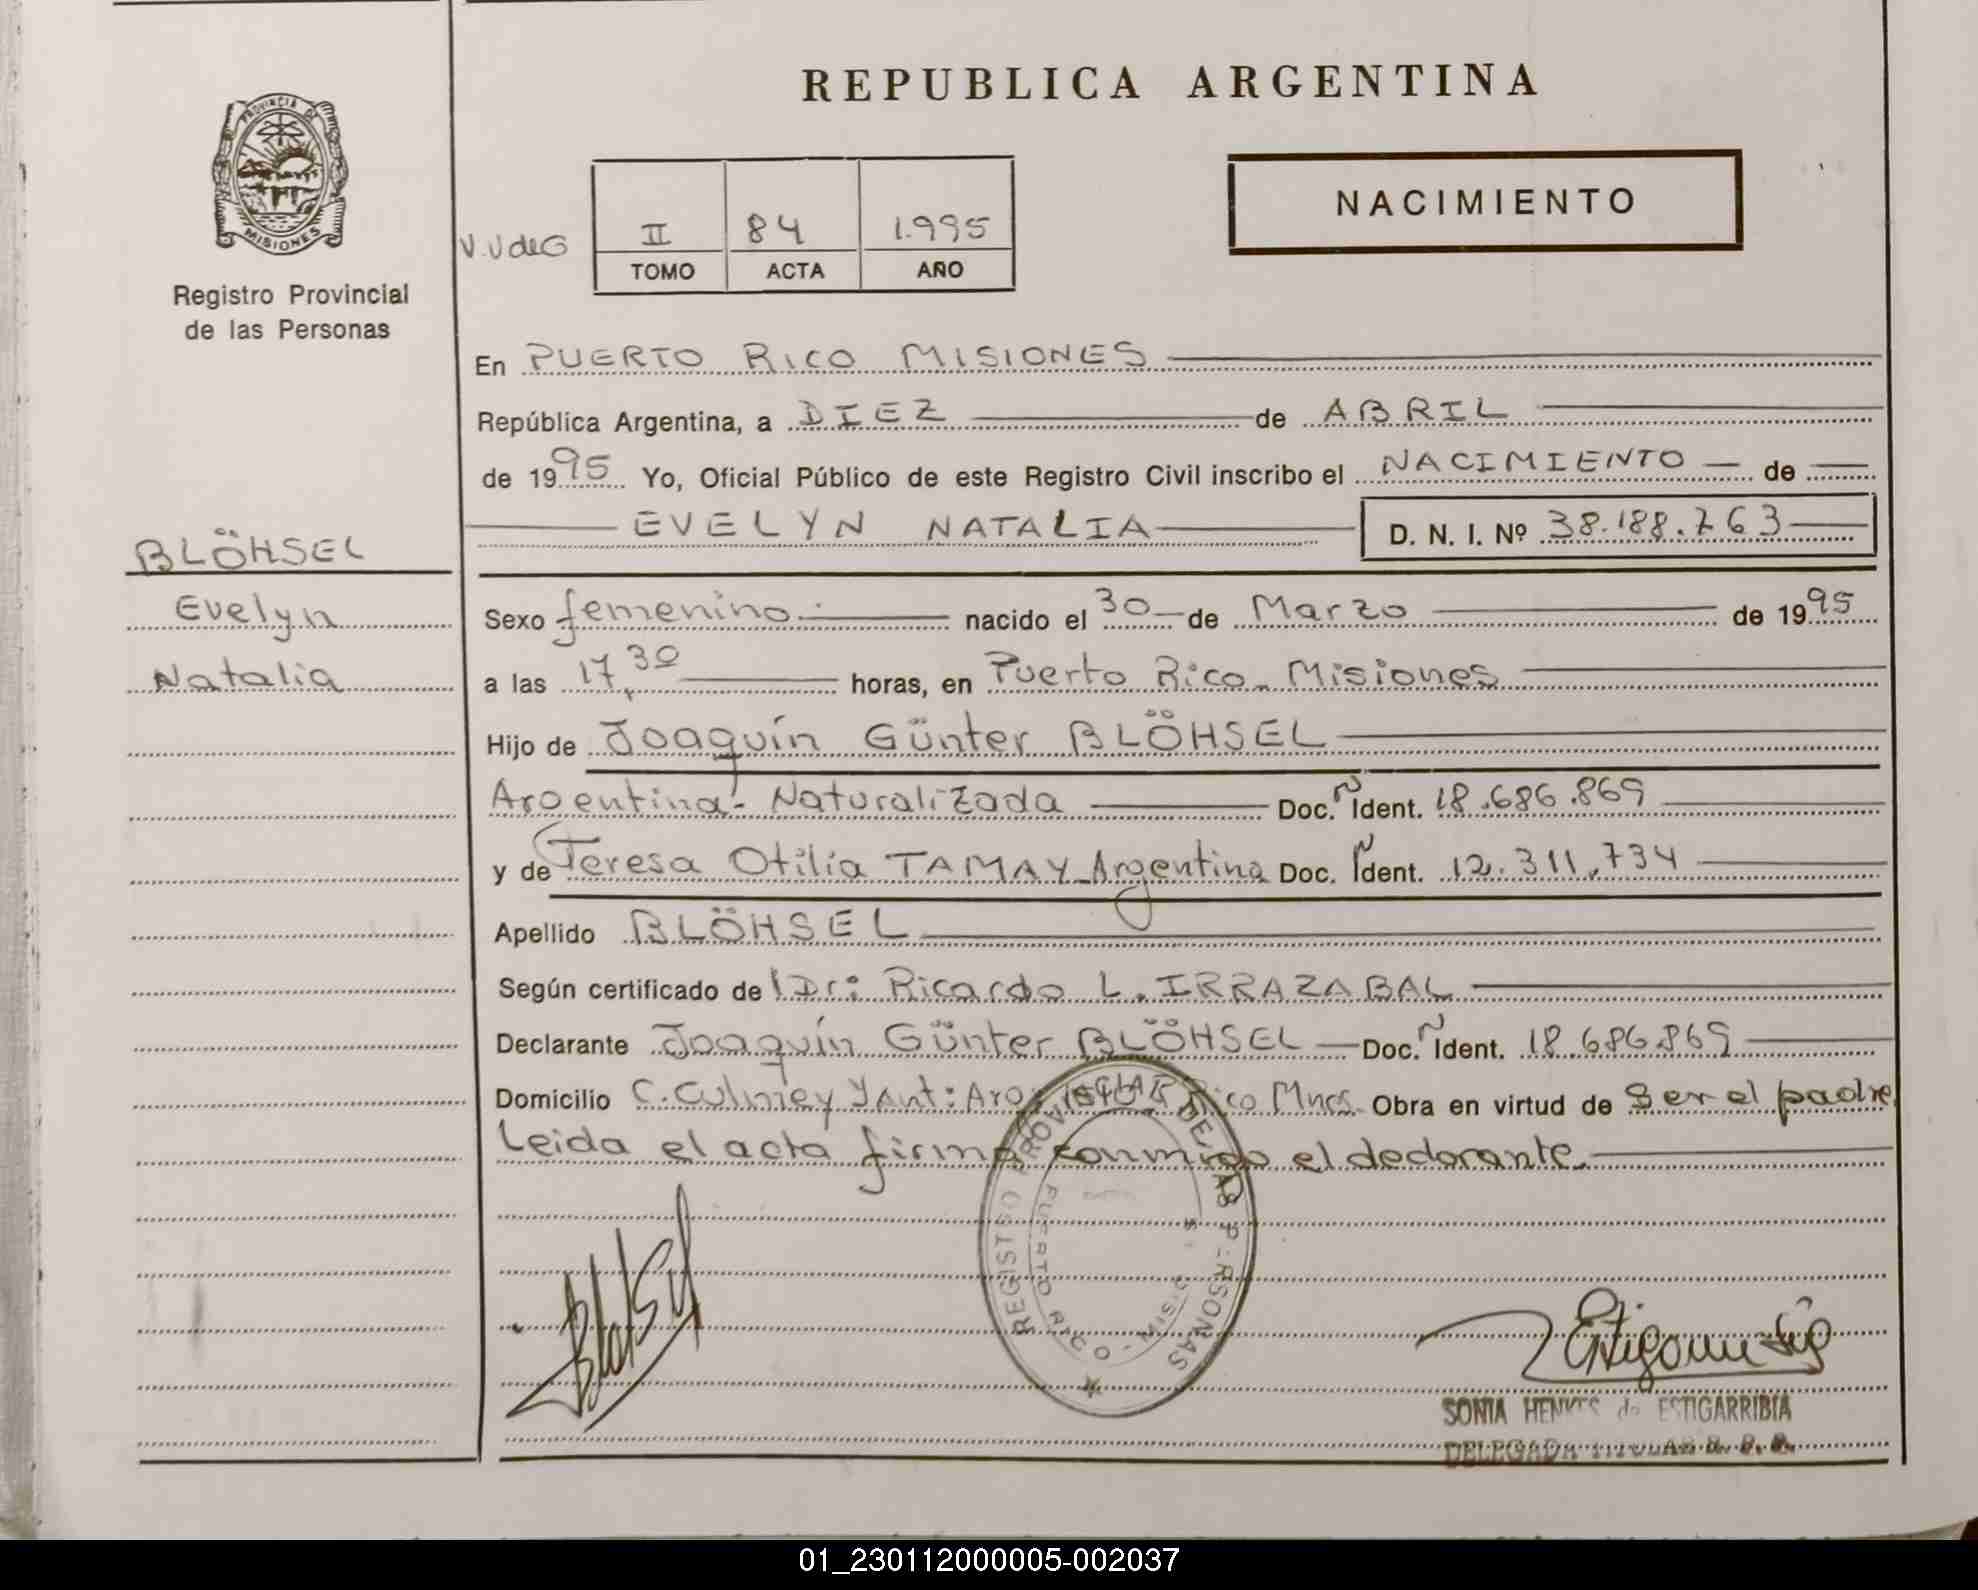 REPUBLICA ARGENTINA
PROVINCIA DE
MISIONES
Registro Provincial
de las Personas
NACIMIENTO
V.V de G
II 84 1.995
TOMO ACTA AÑO
En PUERTO RICO MISIONES
República Argentina, a DIEZ de ABRIL
de 1995 Yo, Oficial Público de este Registro Civil inscribo el NACIMIENTO de
EVELYN NATALIA D. N. I. Nº 38.188.763
BLÖHSEL
Evelyn
Natalia
Sexo femenino.- nacido el 30 de Marzo de 1995
a las 17,30 horas, en Puerto Rico - Misiones
Hijo de Joaquín Günter BLÖHSEL
Argentina - Naturalizada Doc. Ident. 18.686.869
y de Teresa Otilia TAMAY - Argentina Doc. Ident. 12.311.734
Apellido BLÖHSEL
Según certificado de Dr: Ricardo L. IRRAZABAL
Declarante Joaquín Günter BLÖHSEL Doc. Ident. 18.686.869
Domicilio C. Rico Mnes. Obra en virtud de Ser el padre
Leida el acta firma conmigo el declarante.
REGISTRO PROVINCIAL DE LAS PERSONAS
PUERTO RICO
SONIA HENKES de ESTIGARRIBIA
DELEGADA TITULAR R. P. P.
01_230112000005-002037